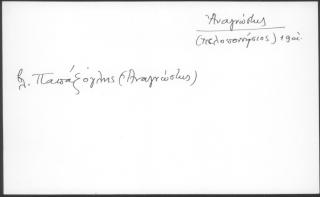 Ἀναγνώστης
(πελοποννήσιος) 19ος
βλ. Παπάζογλης (Ἀναγνώστης)